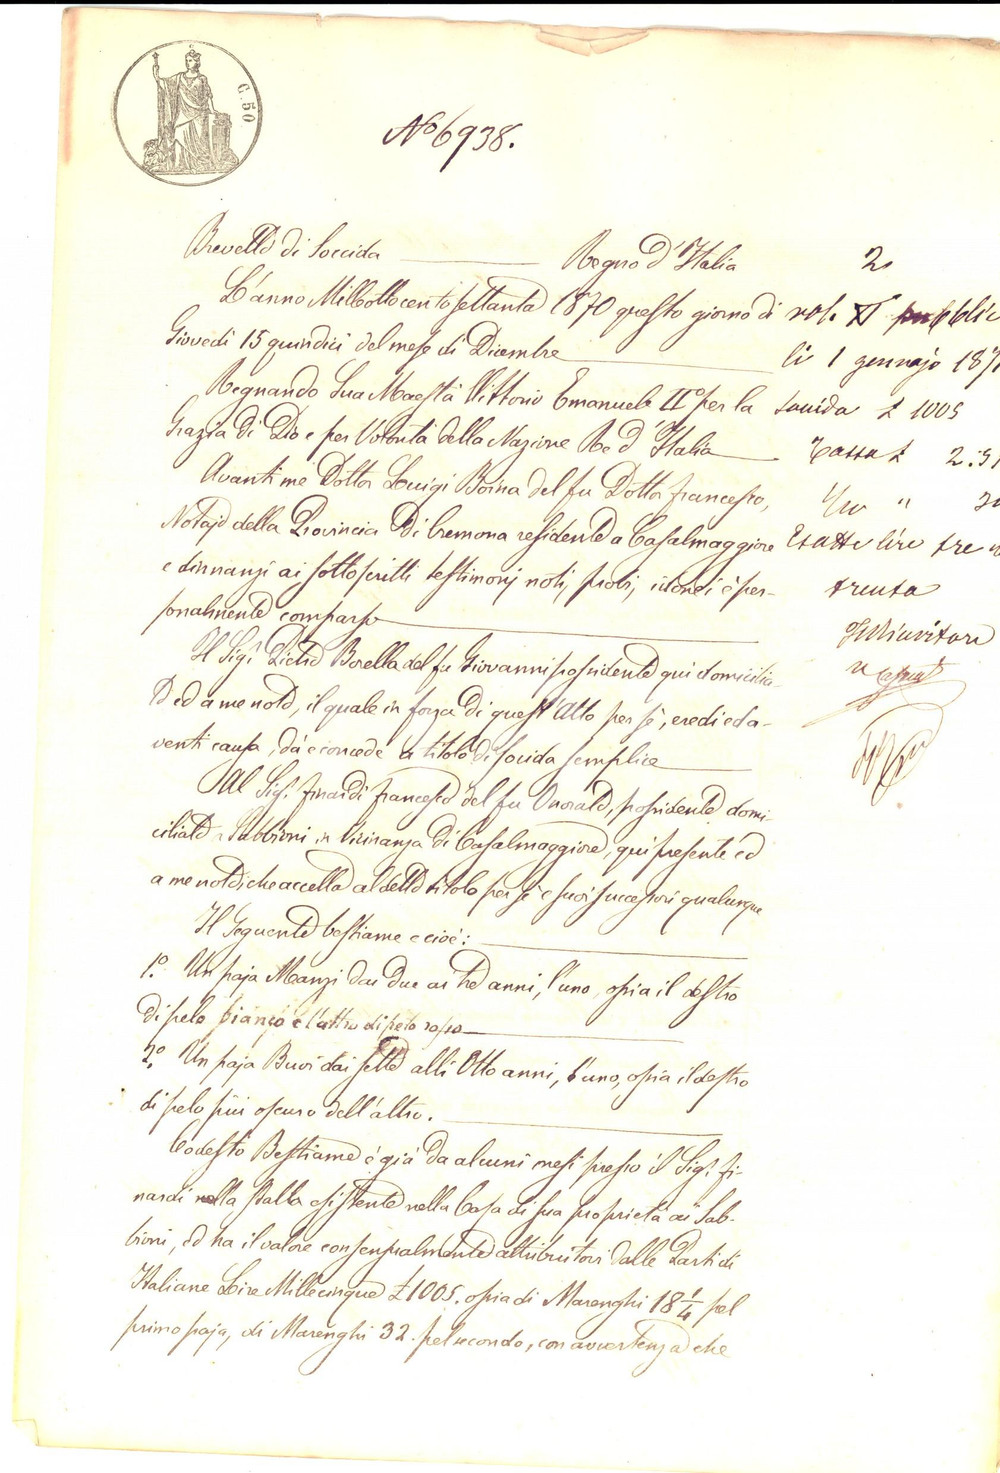 C. 50
No 6938.
Brevetto di Soccida Regno d'Italia
L'anno Millottocentosettanta 1870 questo giorno di
Giovedì 15 quindici del mese di Dicembre
Regnando Sua Maestà Vittorio Emanuele II° per la
Grazia di Dio e per Volontà della Nazione Re d'Italia
Avanti me Dottor Luigi Boina del fu Dottor Francesco,
Notajo della Provincia di Cremona residente a Casalmaggiore
e dinnanzi ai sottoscritti testimonj noti, probi, idonei è per-
sonalmente comparso
Il Sig.r Pietro Borella del fu Giovanni possidente qui domicilia-
to ed a me noto, il quale in forza di quest'Atto per sé, eredi ed a-
venti causa, dà e concede a titolo di soccida semplice
Al Sig.r Finardi Francesco del fu Onorato, possidente domi-
ciliato a Sabbioni in Vicinanza di Casalmaggiore, qui presente ed
a me noto che accetta al detto titolo per sé e suoi successori qualunque
Il Seguente bestiame e cioè:
1°. Un paja Manzi dai due ai tre anni, l'uno, ossia il destro
di pelo bianco e l'altro di pelo rosso
2°. Un paja Buoi dai sette alli Otto anni, l'uno, ossia il destro
di pelo più oscuro dell'altro.
Codesto Bestiame è già da alcuni mesi presso il Sig.r Fi-
nardi nella stalla esistente nella Casa di sua proprietà ai Sab-
bioni, ed ha il valore consensualmente attribuitovi dalle Parti di
Italiane Lire Millecinque £ 1005. ossia di Marenghi 18 1/4 pel
primo paja, di Marenghi 32. pel secondo, con avvertenza che
2
vol. XI pubblic
li 1 gennajo 187
soccida £ 1005
Tassa £ 2:51
Esatte lire tre
trenta